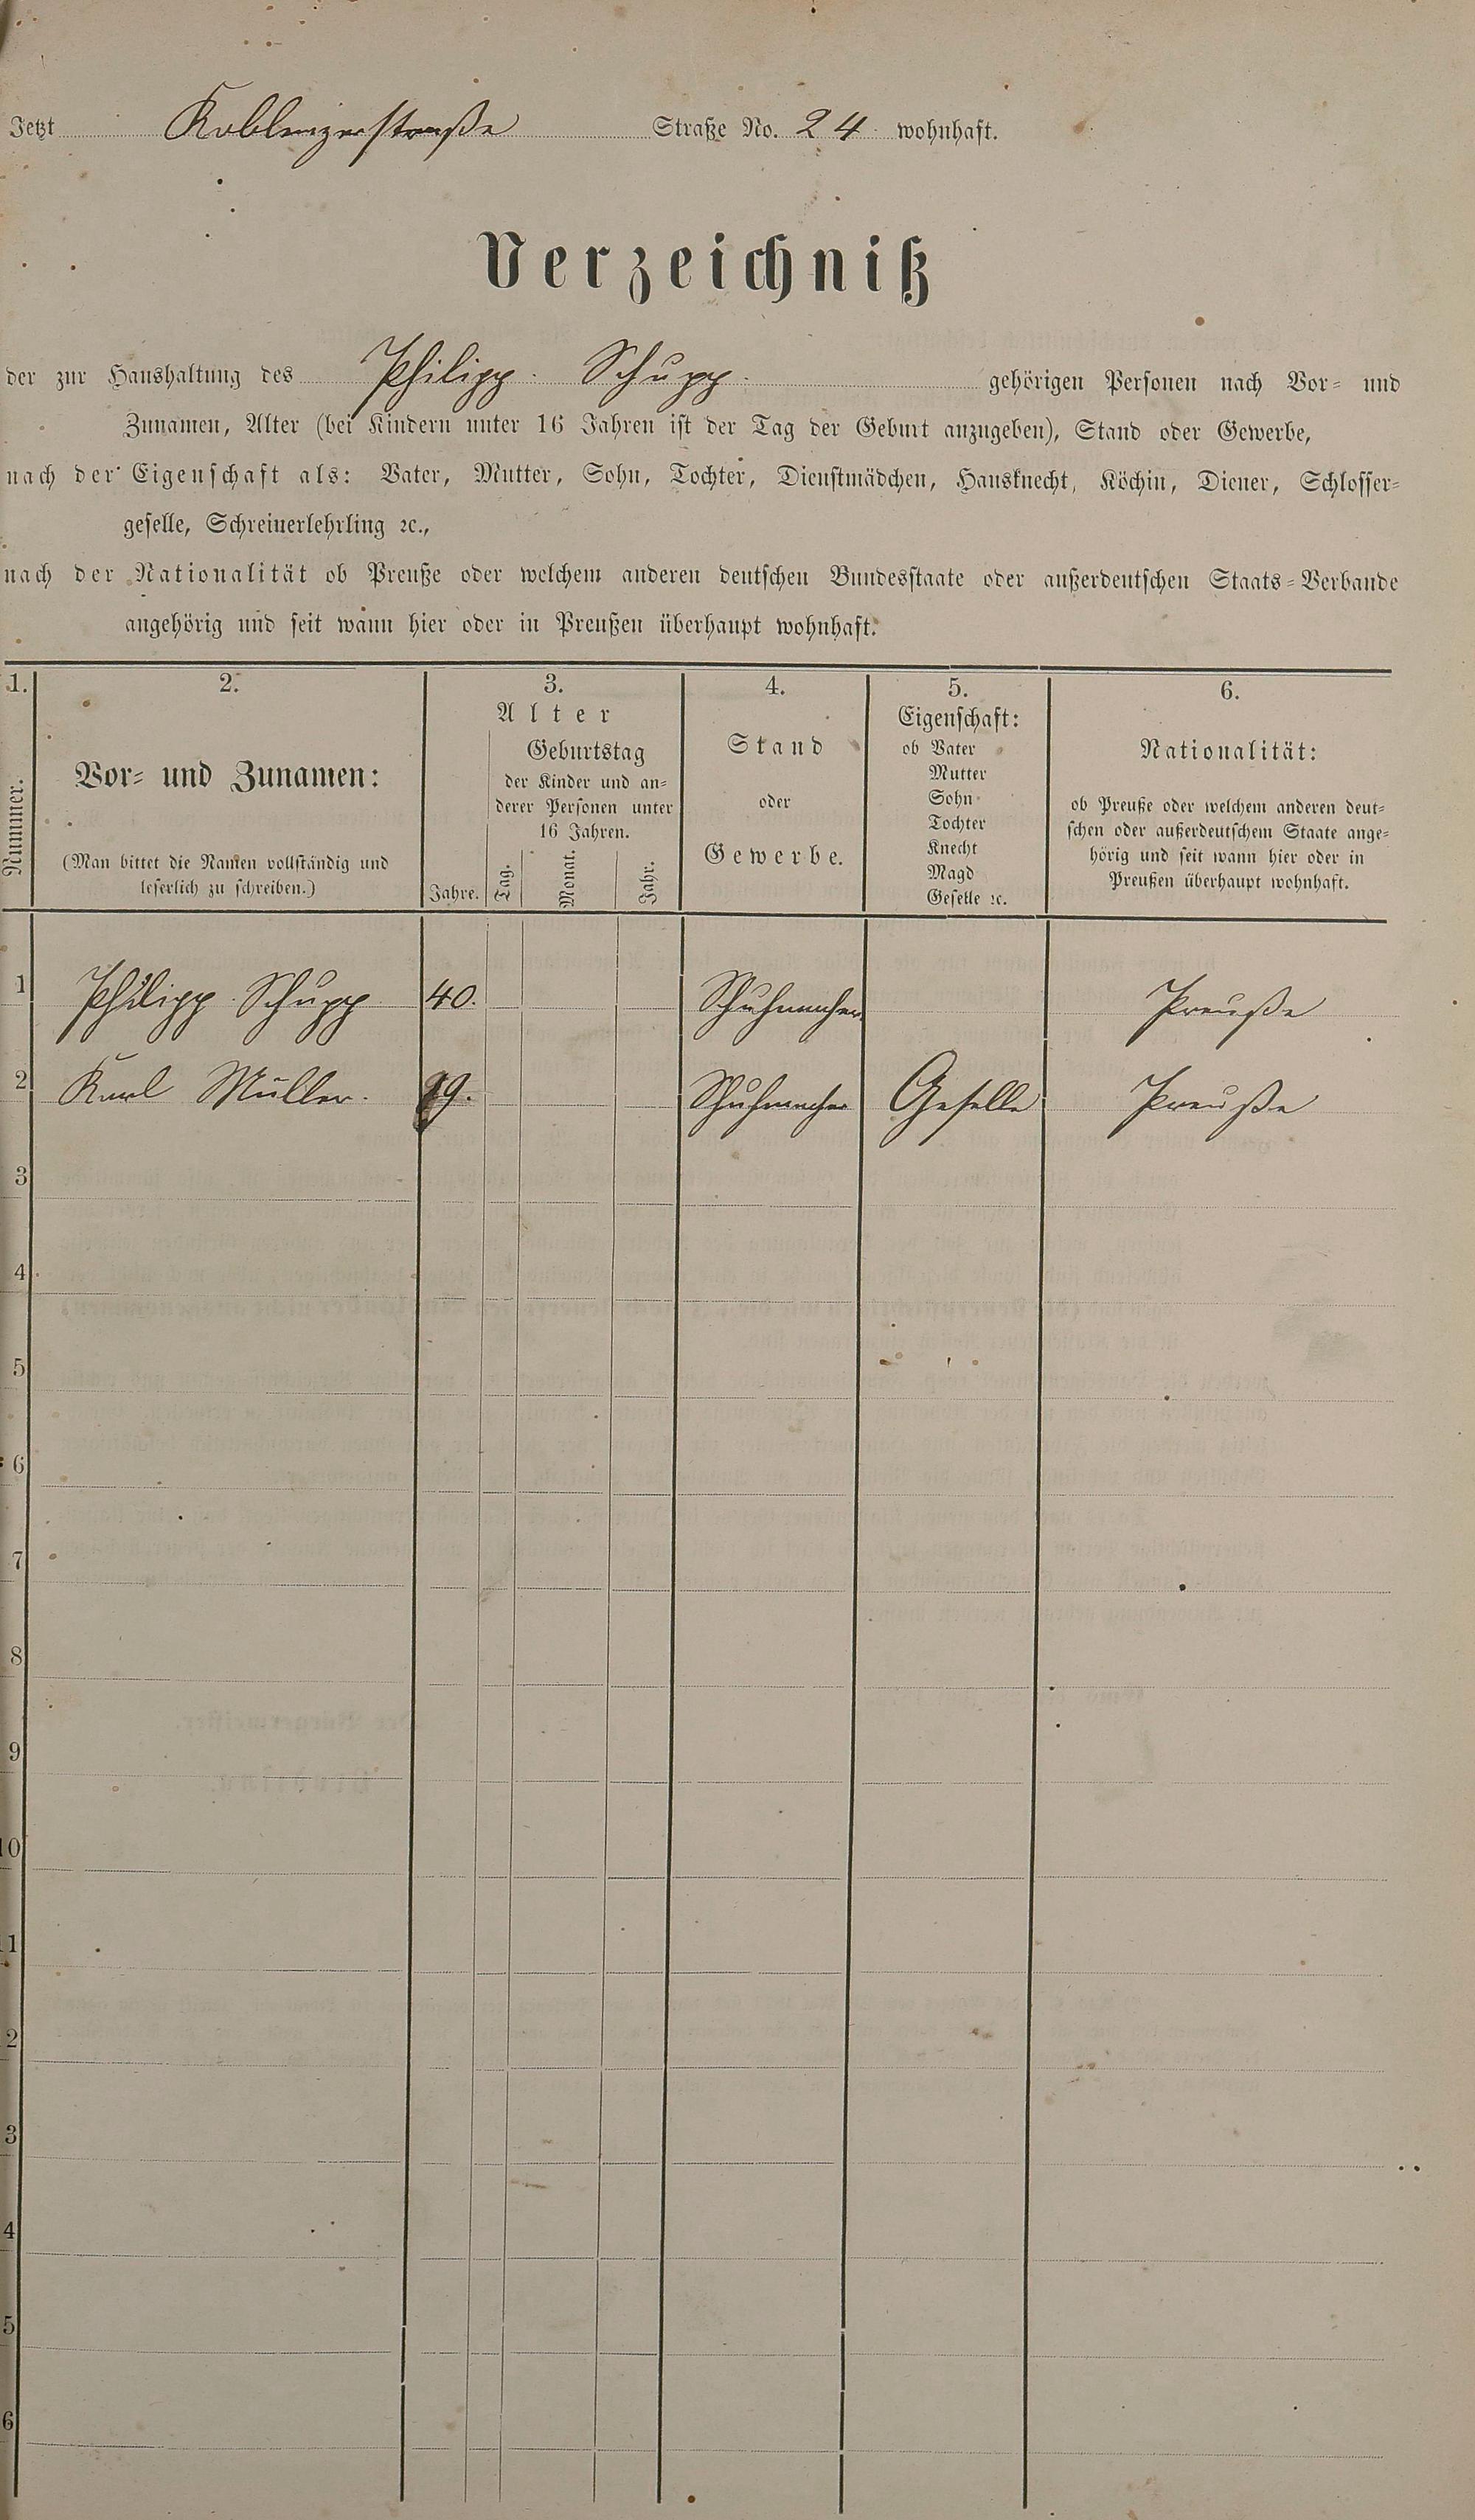 Jetzt Koblenzerstraße Straße No. 24 wohnhaft.
Verzeichniß
der zur Haushaltung des Philipp Schupp. gehörigen Personen nach Vor- und
Zunamen, Alter (bei Kindern unter 16 Jahren ist der Tag der Geburt anzugeben), Stand oder Gewerbe,
nach der Eigenschaft als: Vater, Mutter, Sohn, Tochter, Dienstmädchen, Hausknecht, Köchin, Diener, Schlosser-
geselle, Schreinerlehrling ꝛc.,
nach der Nationalität ob Preuße oder welchem anderen deutschen Bundesstaate oder außerdeutschen Staats-Verbande
angehörig und seit wann hier oder in Preußen überhaupt wohnhaft.
1. 2. 3. 4. 5. 6.
Nummer.
Vor- und Zunamen:
(Man bittet die Namen vollständig und
leserlich zu schreiben.)
Alter
Jahre.
Geburtstag
der Kinder und an-
derer Personen unter
16 Jahren.
Tag. Monat. Jahr.
Stand
oder
Gewerbe.
Eigenschaft:
ob Vater
Mutter
Sohn
Tochter
Knecht
Magd
Geselle ꝛc.
Nationalität:
ob Preuße oder welchem anderen deut-
schen oder außerdeutschem Staate ange-
hörig und seit wann hier oder in
Preußen überhaupt wohnhaft.
1 Philipp Schupp 40. Schuhmacher Preuße
2 Karl Müller. 19. Schuhmacher Geselle Preuße
3
4
5
6
7
8
9
10
1
2
3
4
5
6